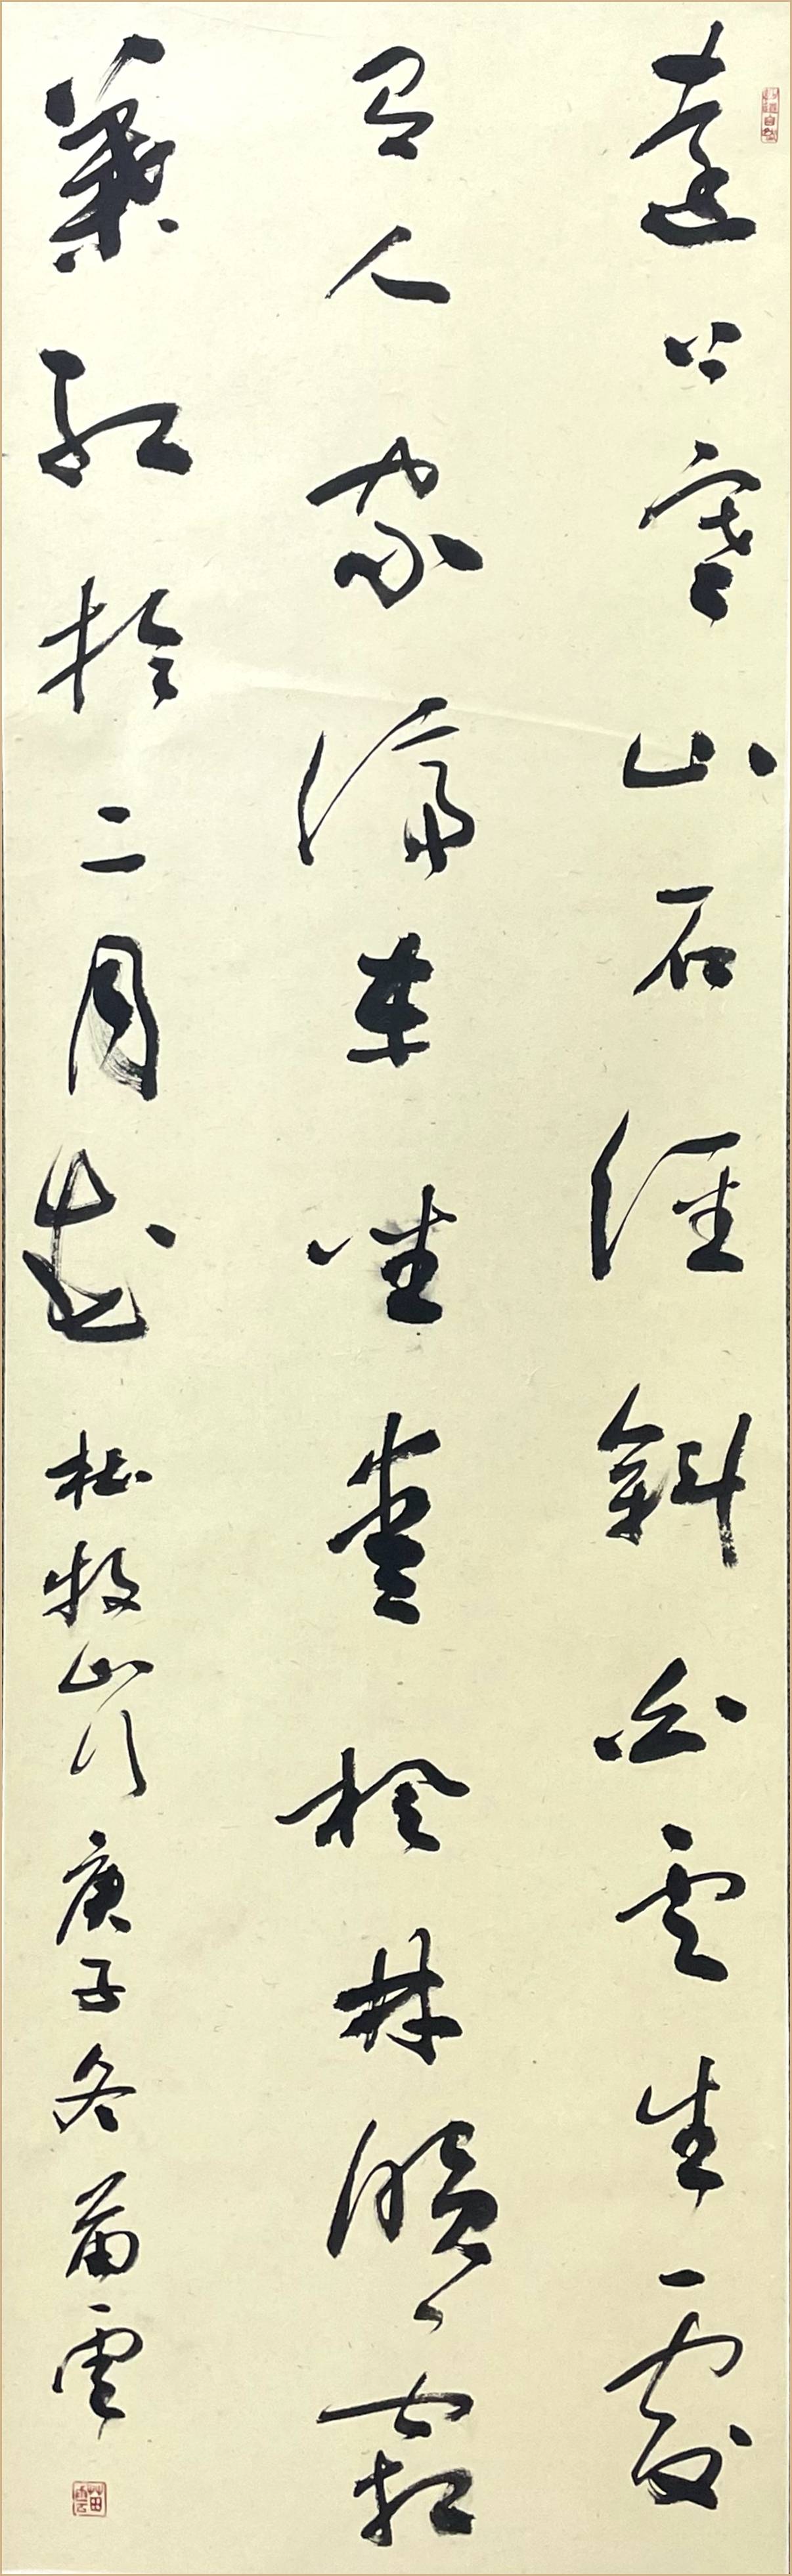 遠上寒山石徑斜白雲生處
有人家停車坐愛楓林晚霜
葉紅於二月花 杜牧山行 庚子冬 苗雲